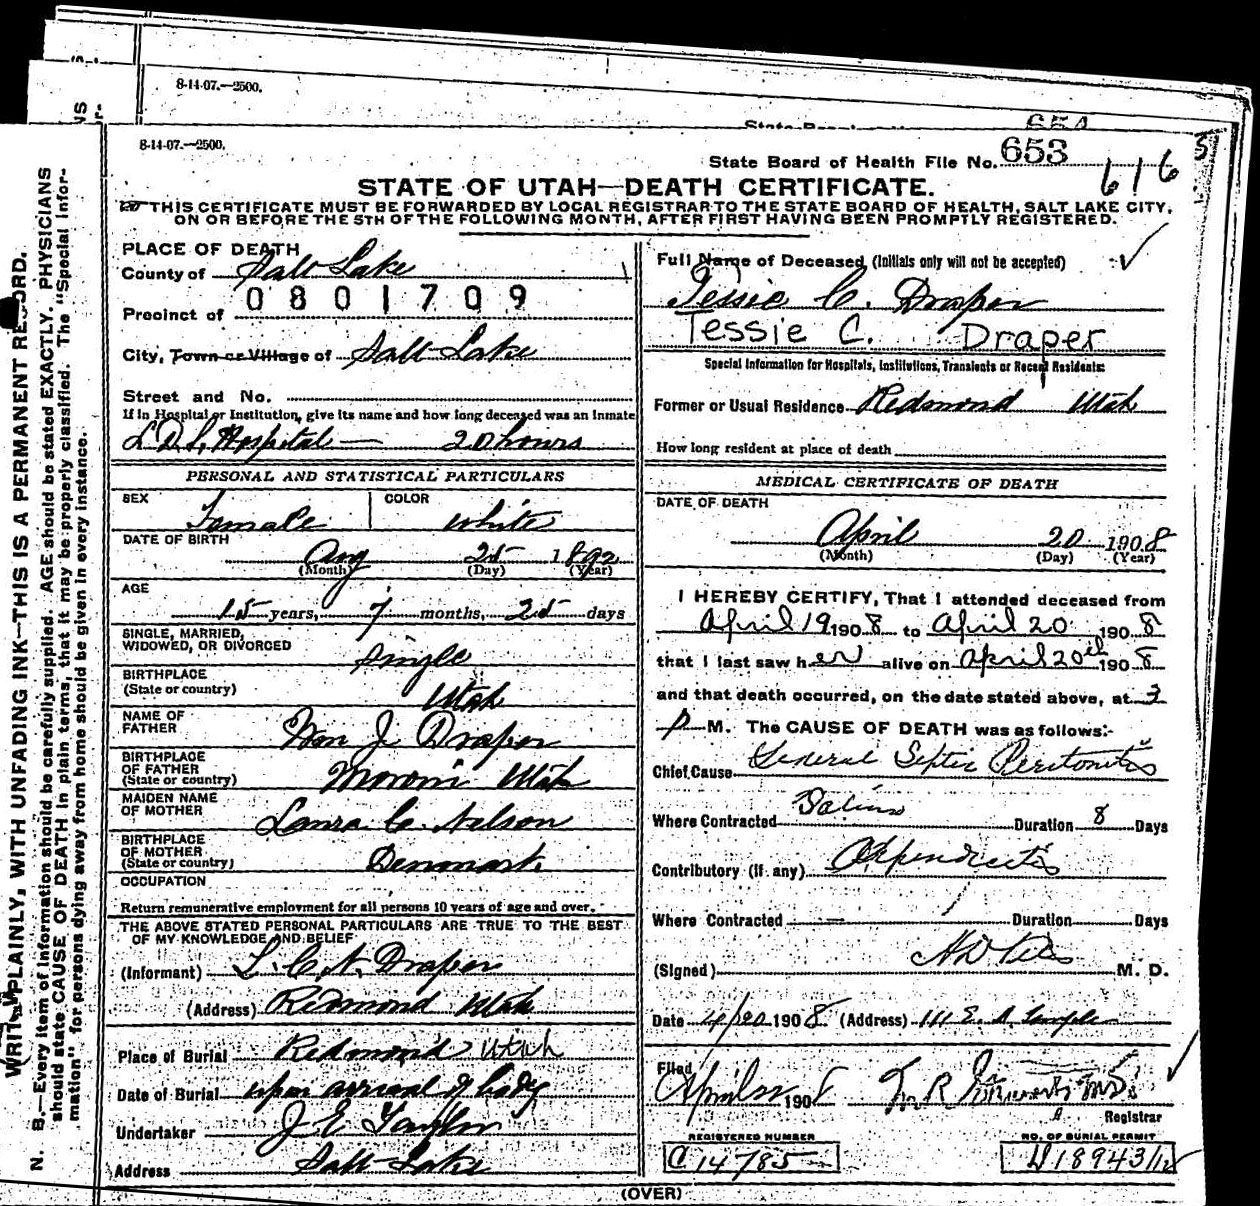 8-14-07.—2500.
State Board
654
8-14-07.—2500.
State Board of Health File No. 653
616
STATE OF UTAH—DEATH CERTIFICATE.
THIS CERTIFICATE MUST BE FORWARDED BY LOCAL REGISTRAR TO THE STATE BOARD OF HEALTH, SALT LAKE CITY,
ON OR BEFORE THE 5TH OF THE FOLLOWING MONTH, AFTER FIRST HAVING BEEN PROMPTLY REGISTERED.
PLACE OF DEATH
County of Salt Lake
0801709
Precinct of
City, Town or Village of Salt Lake
Street and No.
If in Hospital or Institution, give its name and how long deceased was an inmate
L.D.S. Hospital — 20 hours
PERSONAL AND STATISTICAL PARTICULARS
SEX Female COLOR white
DATE OF BIRTH
Aug 25 1892
(Month) (Day) (Year)
AGE
15 years, 7 months, 25 days
SINGLE, MARRIED,
WIDOWED, OR DIVORCED Single
BIRTHPLACE
(State or country) Utah
NAME OF
FATHER Wm J Draper
BIRTHPLACE
OF FATHER
(State or country) Moroni Utah
MAIDEN NAME
OF MOTHER Laura C. Nelson
BIRTHPLACE
OF MOTHER
(State or country) Denmark
OCCUPATION
Return remunerative employment for all persons 10 years of age and over.
THE ABOVE STATED PERSONAL PARTICULARS ARE TRUE TO THE BEST
OF MY KNOWLEDGE AND BELIEF
(Informant) L. C. N. Draper
(Address) Redmond Utah
Place of Burial Redmond Utah
Date of Burial upon arrival of body
Undertaker J. E. Taylor
Address Salt Lake
Full Name of Deceased (Initials only will not be accepted)
Tessie C. Draper
Tessie C. Draper
Special Information for Hospitals, Institutions, Transients or Recent Residents:
Former or Usual Residence Redmond Utah
How long resident at place of death
MEDICAL CERTIFICATE OF DEATH
DATE OF DEATH
April 20 1908
(Month) (Day) (Year)
I HEREBY CERTIFY, That I attended deceased from
April 19 1908 to April 20 1908
that I last saw her alive on April 20th 1908
and that death occurred, on the date stated above, at 3
P M. The CAUSE OF DEATH was as follows:-
Chief Cause General Septic Peritonitis
Where Contracted Salina Duration 8 Days
Contributory (if any) Appendicitis
Where Contracted — Duration Days
(Signed) M. D.
Date 4/20 1908 (Address) 111 E. S. Temple
Filed
April 1908
Registrar
REGISTERED NUMBER
C 14785
NO. OF BURIAL PERMIT
(OVER)
WRITE PLAINLY, WITH UNFADING INK—THIS IS A PERMANENT RECORD.
N. B.—Every item of information should be carefully supplied. AGE should be stated EXACTLY. PHYSICIANS
should state CAUSE OF DEATH in plain terms, that it may be properly classified. The "Special Infor-
mation" for persons dying away from home should be given in every instance.